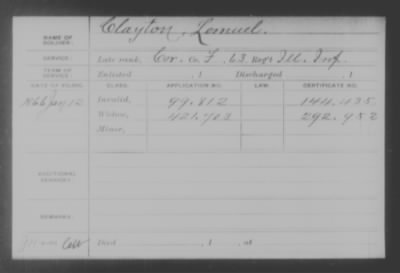 NAME OF SOLDIER: Clayton, Lemuel.
SERVICE: Late rank, Cor. Co. F, 63 Reg't Ill. Inf.
TERM OF SERVICE: Enlisted , 1 Discharged , 1
DATE OF FILING. CLASS. APPLICATION NO. LAW. CERTIFICATE NO.
1866 Jany 12 Invalid, 99.812 144.435
Widow, 421.703 292.952
Minor,
ADDITIONAL SERVICES:
REMARKS:
Died , 1 , at